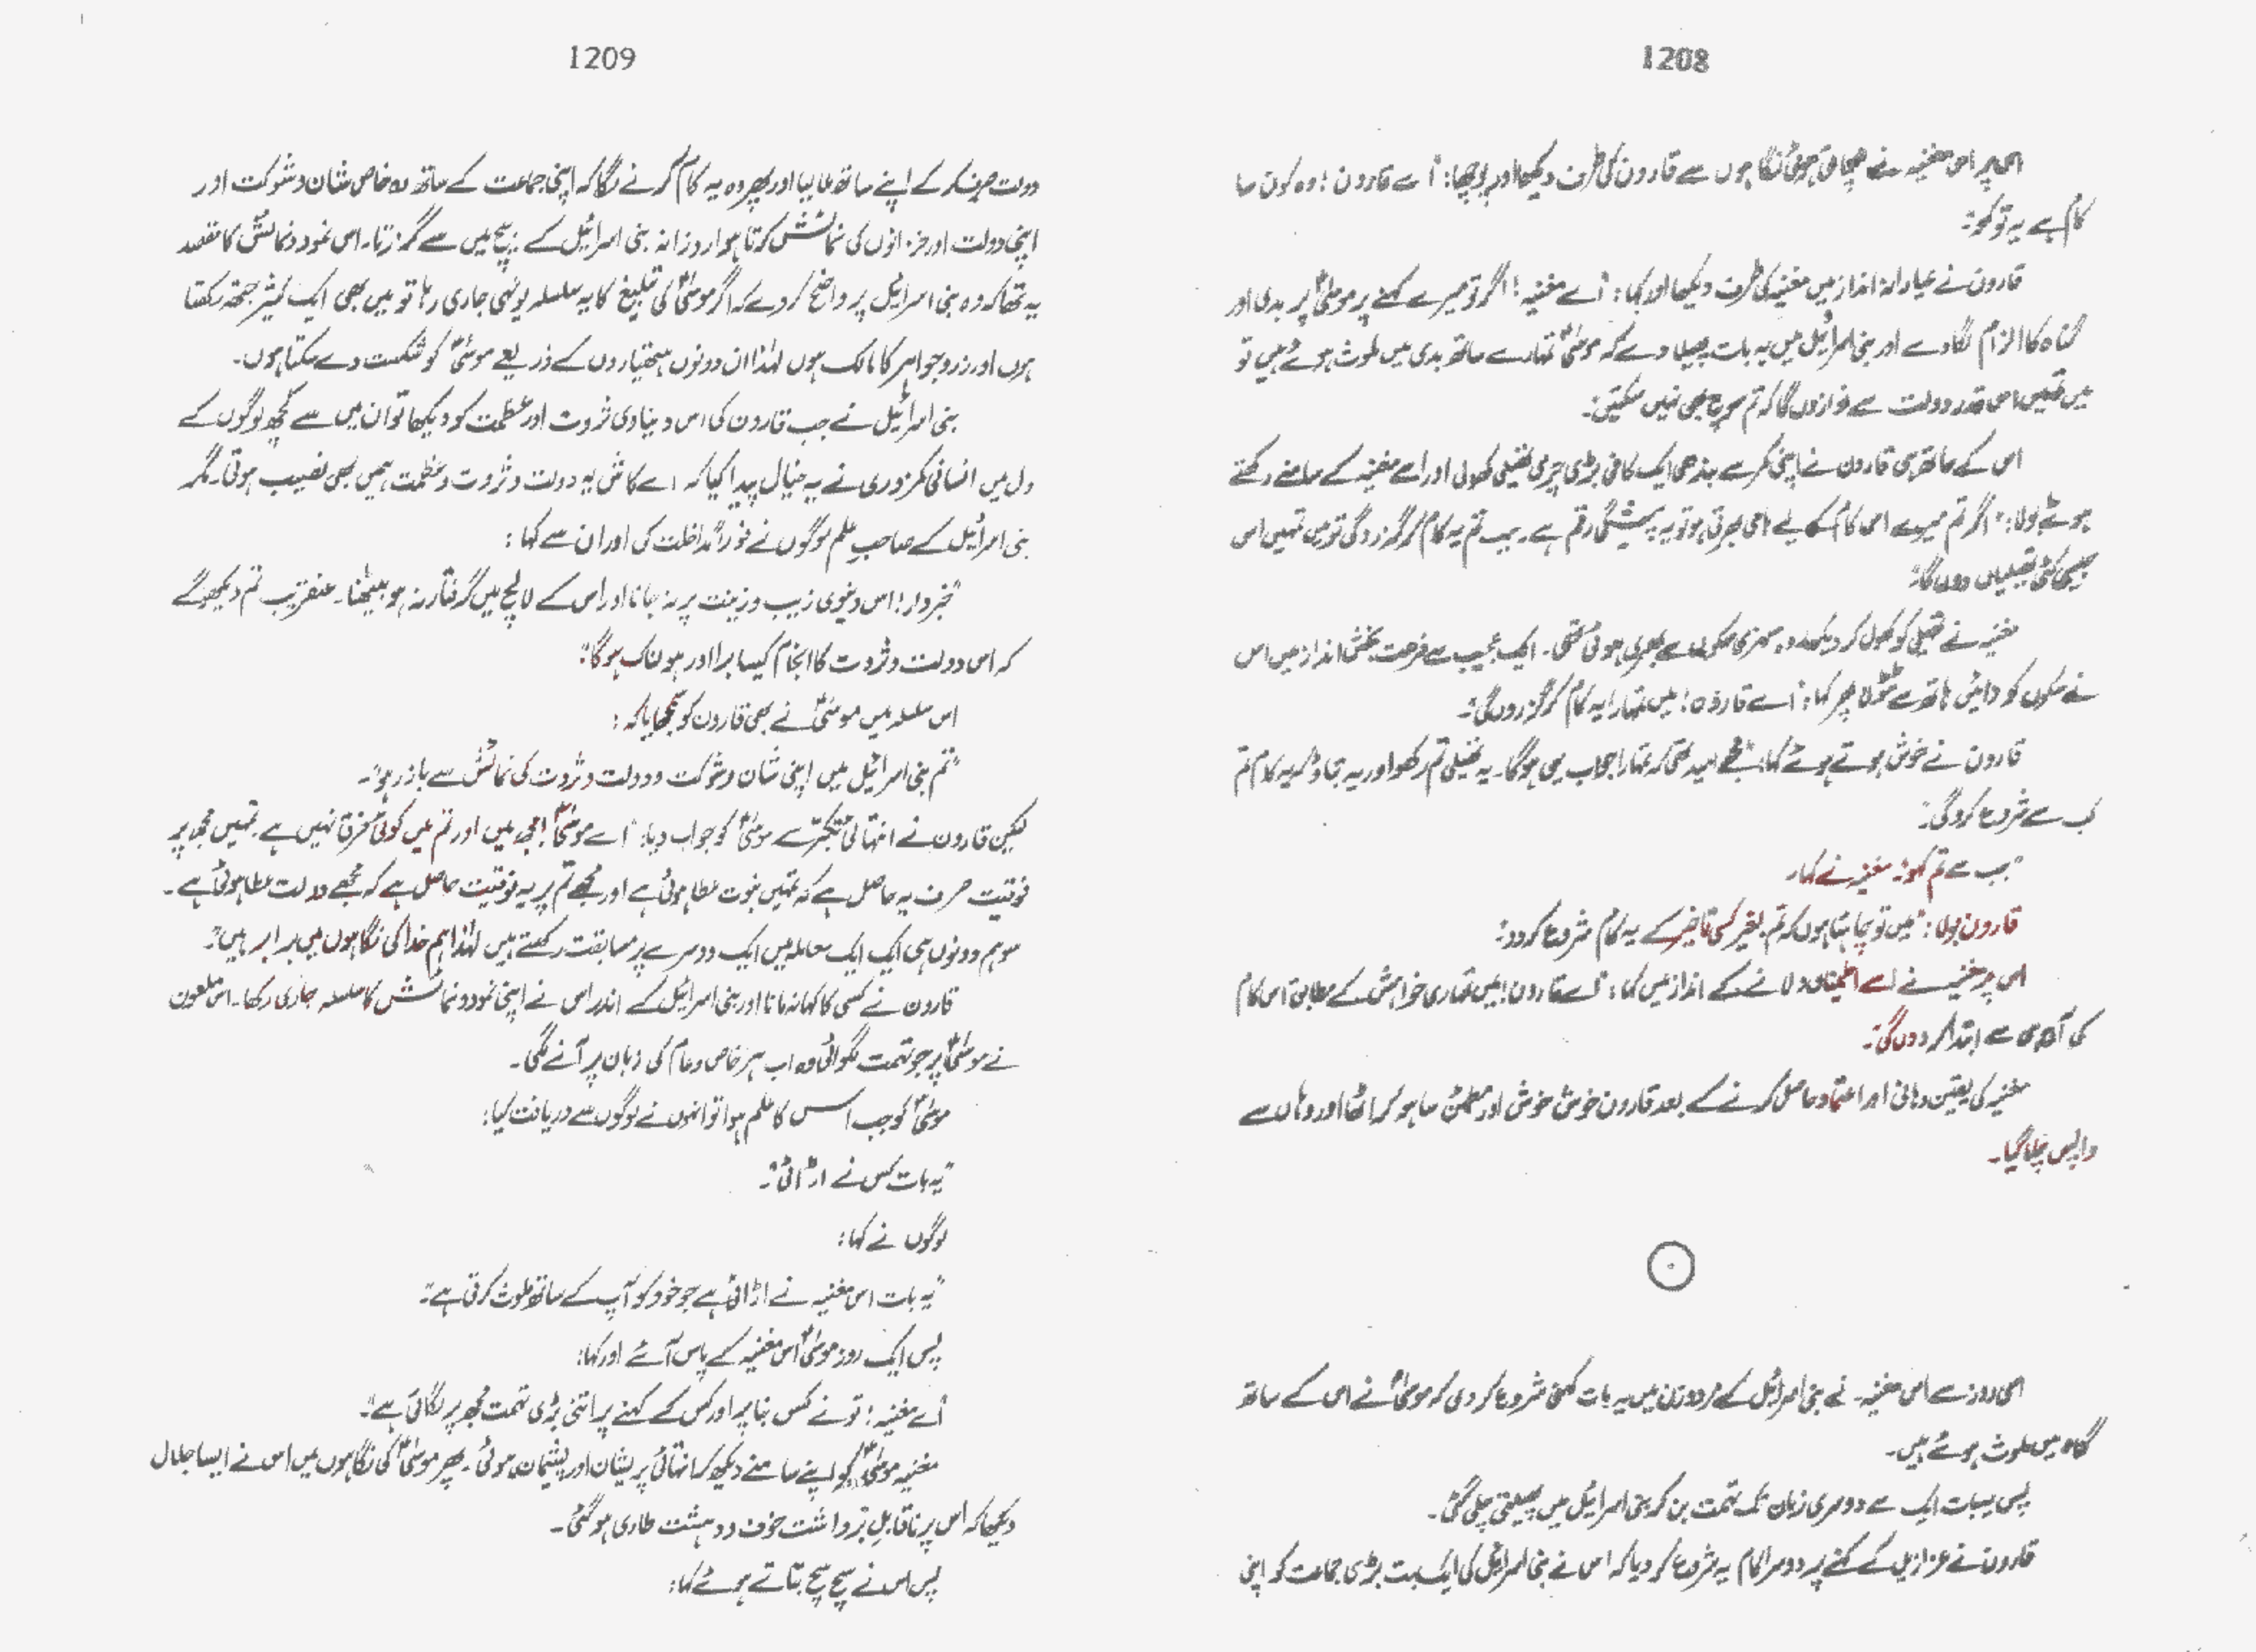 1208
اس پر اس مغنیہ نے للچائی ہوئی نگاہوں سے قارون کی طرف دیکھا اور پوچھا: "اے قارون! وہ کون سا
کام ہے یہ تو کہو۔"
قارون نے عیارانہ انداز میں مغنیہ کی طرف دیکھا اور کہا: "اے مغنیہ! اگر تو میرے کہنے پر موسیٰؑ پر بدی اور
گناہ کا الزام لگا دے اور بنی اسرائیل میں یہ بات پھیلا دے کہ موسیٰؑ تمہارے ساتھ بدی میں ملوث ہوئے ہیں تو
میں تمہیں اس قدر دولت سے نوازوں گا کہ تم سوچ بھی نہیں سکتیں۔"
اس کے ساتھ ہی قارون نے اپنی کمر سے بندھی ایک کافی بڑی چرمی تھیلی کھولی اور اسے مغنیہ کے سامنے رکھتے
ہوئے بولا: "اگر تم میرے اس کام کے لیے حامی بھرتی ہو تو یہ پیشگی رقم ہے۔ جب تم یہ کام کر گزرو گی تو میں تمہیں اس
جیسی کئی تھیلیاں دوں گا۔"
مغنیہ نے تھیلی کو کھول کر دیکھا۔ وہ سنہری سکوں سے بھری ہوئی تھی۔ ایک عجیب سے فرحت بخش انداز میں اس
نے سکوں کو دائیں ہاتھ سے ٹٹولا پھر کہا: "اے قارون! میں تمہارا یہ کام کر گزروں گی۔"
قارون نے خوش ہوتے ہوئے کہا: "مجھے امید تھی کہ تمہارا جواب یہی ہوگا۔ یہ تھیلی تم رکھو اور یہ بتاؤ کہ یہ کام تم
کب سے شروع کرو گی۔"
"جب سے تم کہو۔" مغنیہ نے کہا۔
قارون بولا: "میں تو چاہتا ہوں کہ تم بغیر کسی تاخیر کے یہ کام شروع کر دو۔"
اس پر مغنیہ نے اسے اطمینان دلانے کے انداز میں کہا: "اے قارون! میں تمہاری خواہش کے مطابق اس کام
کی آج ہی سے ابتدا کر دوں گی۔"
مغنیہ کی یقین دہانی اور اعتماد حاصل کرنے کے بعد قارون خوش خوش اور مطمئن سا ہو کر اٹھا اور وہاں سے
واپس چلا گیا۔
اسی روز سے اس مغنیہ نے بنی اسرائیل کے مرد و زن میں یہ بات کہنی شروع کر دی کہ موسیٰؑ نے اس کے ساتھ
گناہ میں ملوث ہوئے ہیں۔
پس یہ بات ایک سے دوسری زبان تک تہمت بن کر بنی اسرائیل میں پھیلتی چلی گئی۔
قارون نے عزازیل کے کہنے پر دوسرا کام یہ شروع کر دیا کہ اس نے بنی اسرائیل کی ایک بہت بڑی جماعت کو اپنی
1209
دولت صرف کر کے اپنے ساتھ ملا لیا اور پھر وہ یہ کام کرنے لگا کہ اپنی جماعت کے ساتھ وہ خاص شان و شوکت اور
اپنی دولت اور خزانوں کی نمائش کرتا ہوا روزانہ بنی اسرائیل کے بیچ میں سے گزرتا۔ اس نمود و نمائش کا مقصد
یہ تھا کہ وہ بنی اسرائیل پر واضح کر دے کہ اگر موسیٰؑ کی تبلیغ کا یہ سلسلہ یونہی جاری رہا تو میں بھی ایک کثیر جتھہ رکھتا
ہوں اور زر و جواہر کا مالک ہوں لہٰذا ان دونوں ہتھیاروں کے ذریعے موسیٰؑ کو شکست دے سکتا ہوں۔
بنی اسرائیل نے جب قارون کی اس دنیاوی ثروت اور عظمت کو دیکھا تو ان میں سے کچھ لوگوں کے
دل میں انسانی کمزوری نے یہ خیال پیدا کیا کہ اے کاش یہ دولت و ثروت و عظمت ہمیں بھی نصیب ہوتی۔ مگر
بنی اسرائیل کے صاحبِ علم لوگوں نے فوراً مداخلت کی اور ان سے کہا:
"خبردار! اس دنیوی زیب و زینت پر نہ جانا اور اس کے لالچ میں گرفتار نہ ہو بیٹھنا۔ عنقریب تم دیکھو گے
کہ اس دولت و ثروت کا انجام کیسا برا اور ہولناک ہوگا۔"
اس سلسلہ میں موسیٰؑ نے بھی قارون کو سمجھایا کہ:
"تم بنی اسرائیل میں اپنی شان و شوکت و دولت و ثروت کی نمائش سے باز رہو۔"
لیکن قارون نے انتہائی تکبّر سے موسیٰؑ کو جواب دیا: "اے موسیٰؑ! مجھ میں اور تم میں کوئی فرق نہیں ہے۔ تمہیں مجھ پر
فوقیت صرف یہ حاصل ہے کہ تمہیں نبوت عطا ہوئی ہے اور مجھے تم پر یہ فوقیت حاصل ہے کہ مجھے دولت عطا ہوئی ہے۔
سو ہم دونوں ہی ایک ایک معاملہ میں ایک دوسرے پر مسابقت رکھتے ہیں لہٰذا ہم خدا کی نگاہوں میں برابر ہیں۔"
قارون نے کسی کا کہا نہ مانا اور بنی اسرائیل کے اندر اس نے اپنی نمود و نمائش کا سلسلہ جاری رکھا۔ اس ملعون
نے موسیٰؑ پر جو تہمت لگوائی وہ اب ہر خاص و عام کی زبان پر آنے لگی۔
موسیٰؑ کو جب اس کا علم ہوا تو انہوں نے لوگوں سے دریافت کیا:
"یہ بات کس نے اڑائی؟"
لوگوں نے کہا:
"یہ بات اس مغنیہ نے اڑائی ہے جو خود کو آپ کے ساتھ ملوث کرتی ہے۔"
پس ایک روز موسیٰؑ اس مغنیہ کے پاس آئے اور کہا:
"اے مغنیہ! تو نے کس بنا پر اور کس کے کہنے پر اتنی بڑی تہمت مجھ پر لگائی ہے۔"
مغنیہ موسیٰؑ کو اپنے سامنے دیکھ کر انتہائی پریشان اور پشیمان ہوئی۔ پھر موسیٰؑ کی نگاہوں میں اس نے ایسا جلال
دیکھا کہ اس پر ناقابلِ برداشت خوف و دہشت طاری ہو گئی۔
پس اس نے سچ سچ بتاتے ہوئے کہا: